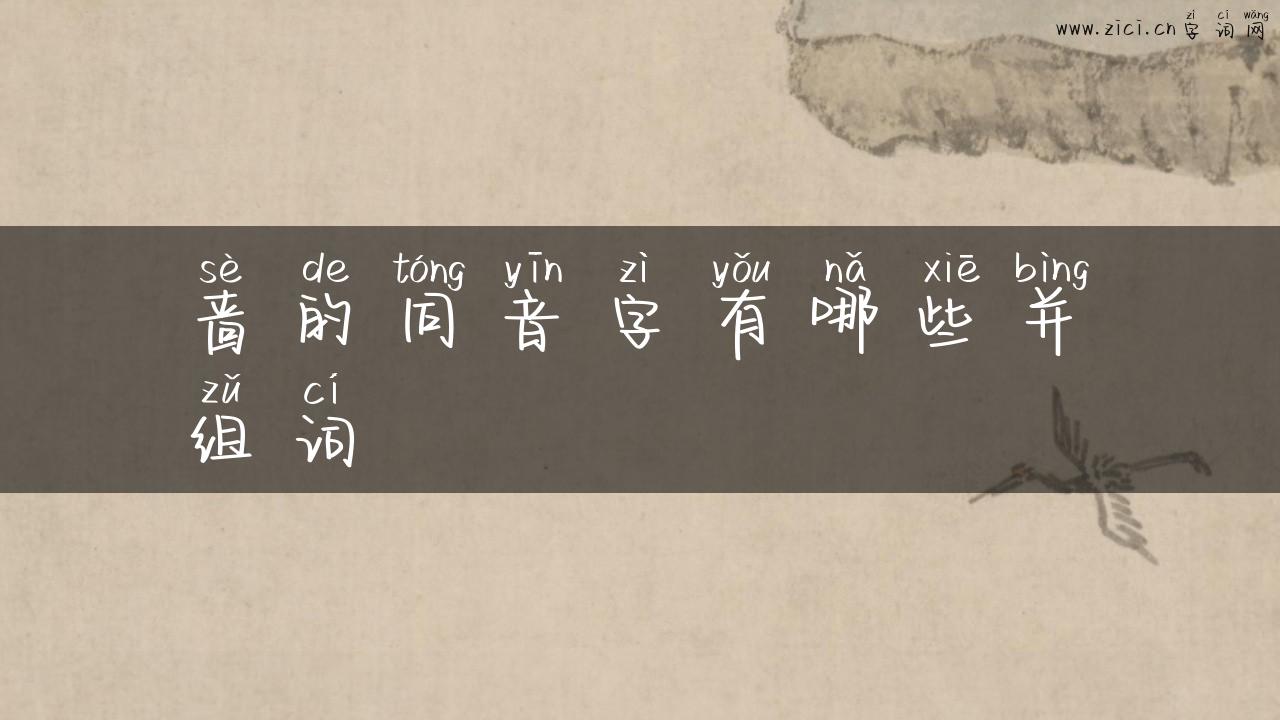 zì cí wǎng
www.zici.cn 字词网
sè de tóng yīn zì yǒu nǎ xiē bìng
啬的同音字有哪些并
zǔ cí
组词